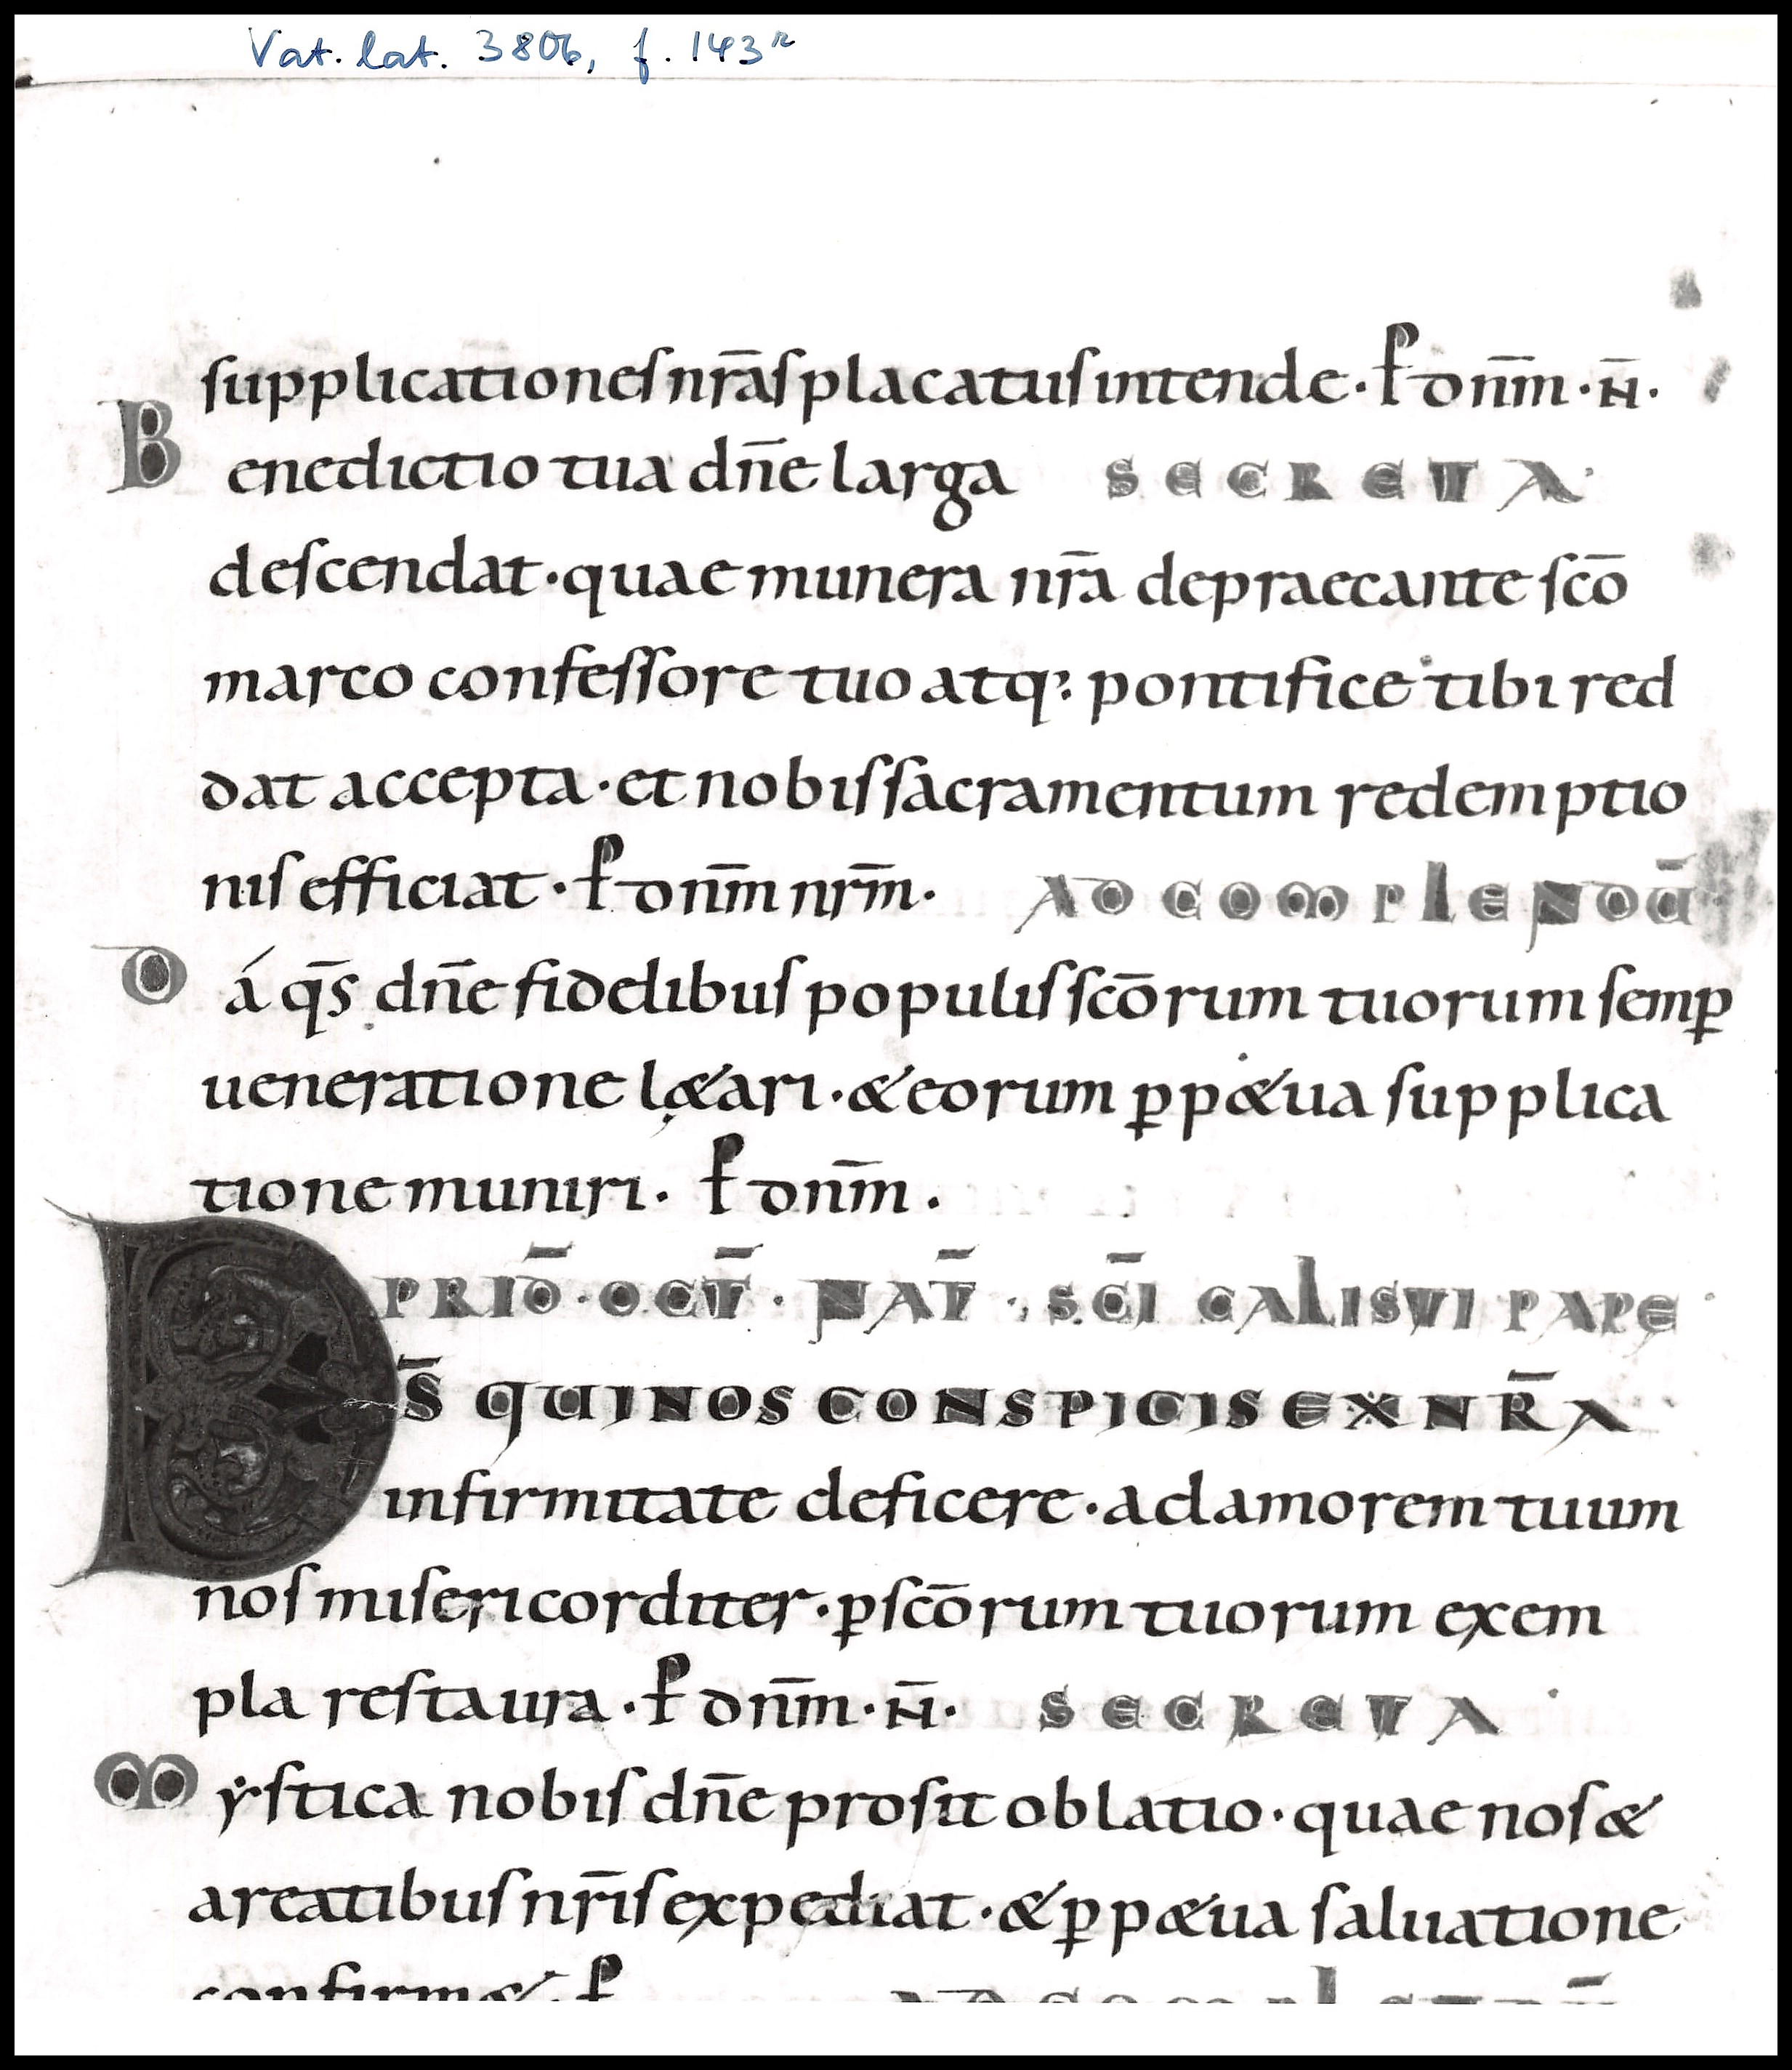 Vat. lat. 3806, f. 143r
supplicationes nr̄as placatus intende · P̶ dn̄m · N̄ ·
Benedictio tua dn̄e larga SECRETA
descendat · quae munera nr̄a depraecante sc̄o
marco confessore tuo atq: pontifice tibi red
dat accepta · et nobis sacramentum redemptio
nis efficiat · P̶ dn̄m nr̄m · AD COMPLENDŪ
Dá q̄s dn̄e fidelibus populis sc̄orum tuorum semꝑ
ueneratione lę&ari · & eorum ꝑp&ua supplica
tione muniri · P̶ dn̄m ·
PRID̄ · OCT̄ · NAT̄ · SC̄I CALISTI PAPE
DS̄ QUI NOS CONSPICIS EX NR̄A
infirmitate deficere · ad amorem tuum
nos misericorditer · ꝑ sc̄orum tuorum exem
pla restaura · P̶ dn̄m · N̄ · SECRETA
Mẏstica nobis dn̄e prosit oblatio · quae nos &
a reatibus nr̄is expediat · & ꝑp&ua saluatione
confirm& · P̶